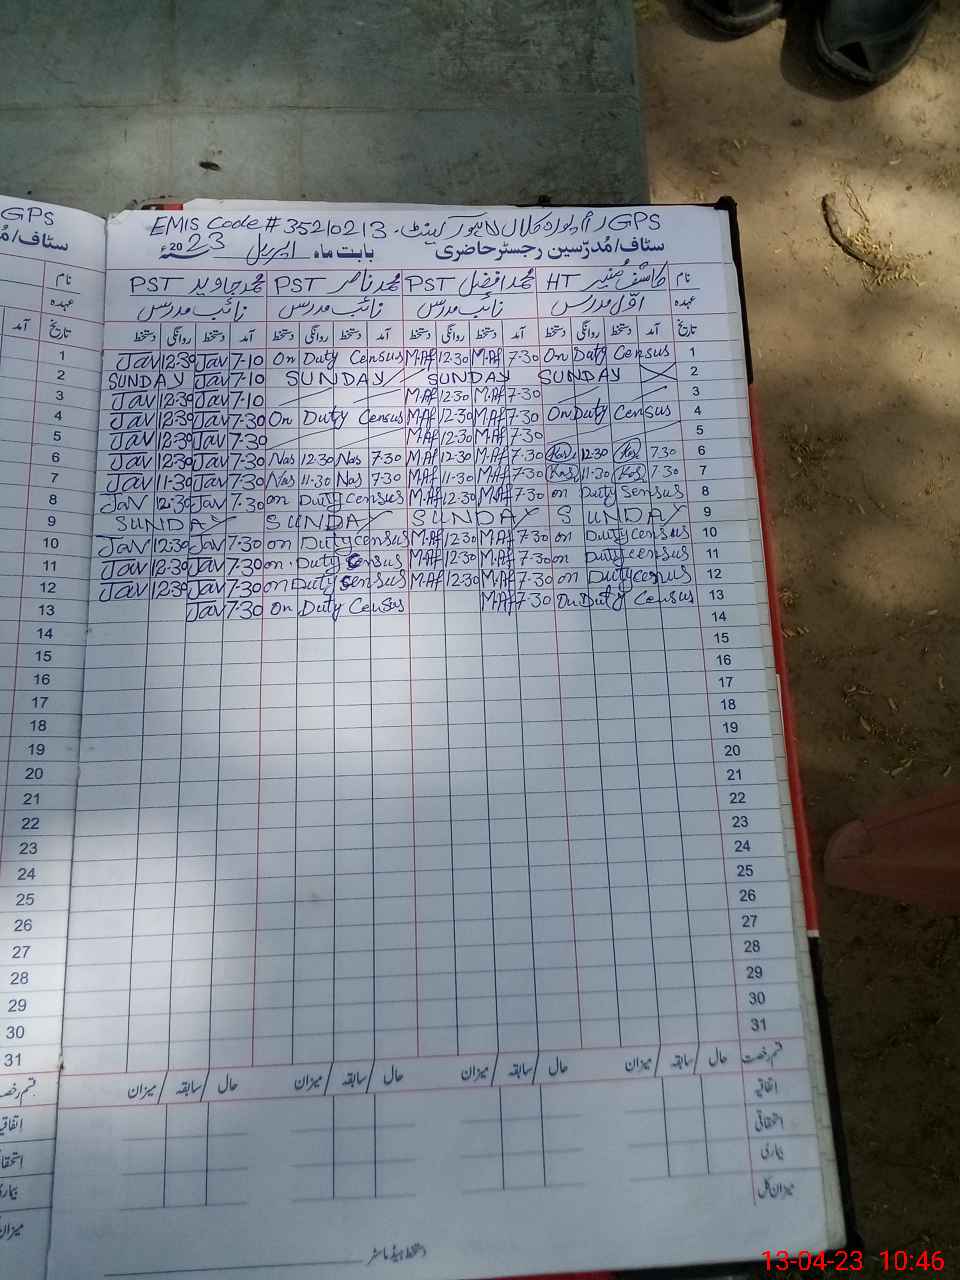 GPS
EMIS Code # 35210213
GPS
سٹاف/مُدرّسین رجسٹر حاضری بابت ماہ اپریل 2023ء
نام کاشف منیر HT محمد افضل PST محمد ناصر PST محمد جاوید PST
عہدہ اوّل مدرس نائب مدرس نائب مدرس نائب مدرس
تاریخ آمد دستخط روانگی دستخط آمد دستخط روانگی دستخط آمد دستخط روانگی دستخط آمد دستخط روانگی دستخط
1 Jav 12-30 Jav 7-10 On Duty Census M.Af 12-30 M.Af 7-30 On Duty Census 1
2 SUNDAY Jav 7-10 SUNDAY SUNDAY SUNDAY 2
3 Jav 12-30 Jav 7-10 M.Af 12-30 M.Af 7-30 3
4 Jav 12-30 Jav 7-30 On Duty Census M.Af 12-30 M.Af 7-30 On Duty Census 4
5 Jav 12-30 Jav 7-30 M.Af 12-30 M.Af 7-30 5
6 Jav 12-30 Jav 7-30 Nas 12-30 Nas 7-30 M.Af 12-30 M.Af 7-30 Kas 12-30 Kas 7-30 6
7 Jav 11-30 Jav 7-30 Nas 11-30 Nas 7-30 M.Af 11-30 M.Af 7-30 Kas 11-30 Kas 7-30 7
8 Jav 12-30 Jav 7-30 on Duty census M.Af 12-30 M.Af 7-30 on Duty Sensus 8
9 SUNDAY SUNDAY SUNDAY SUNDAY 9
10 Jav 12-30 Jav 7-30 on Duty census M.Af 12-30 M.Af 7-30 on Duty census 10
11 Jav 12-30 Jav 7-30 on Duty Census M.Af 12-30 M.Af 7-30 on Duty census 11
12 Jav 12-30 Jav 7-30 on Duty Census M.Af 12-30 M.Af 7-30 on Duty census 12
13 Jav 7-30 On Duty Census M.Af 7-30 On Duty Census 13
14 14
15 15
16 16
17 17
18 18
19 19
20 20
21 21
22 22
23 23
24 24
25 25
26 26
27 27
28 28
29 29
30 30
31 31
قسم رخصت حال سابقہ میزان حال سابقہ میزان حال سابقہ میزان حال سابقہ میزان
اتفاقیہ
استحقاقی
بیماری
میزان کل
دستخط ہیڈ ماسٹر
13-04-23 10:46